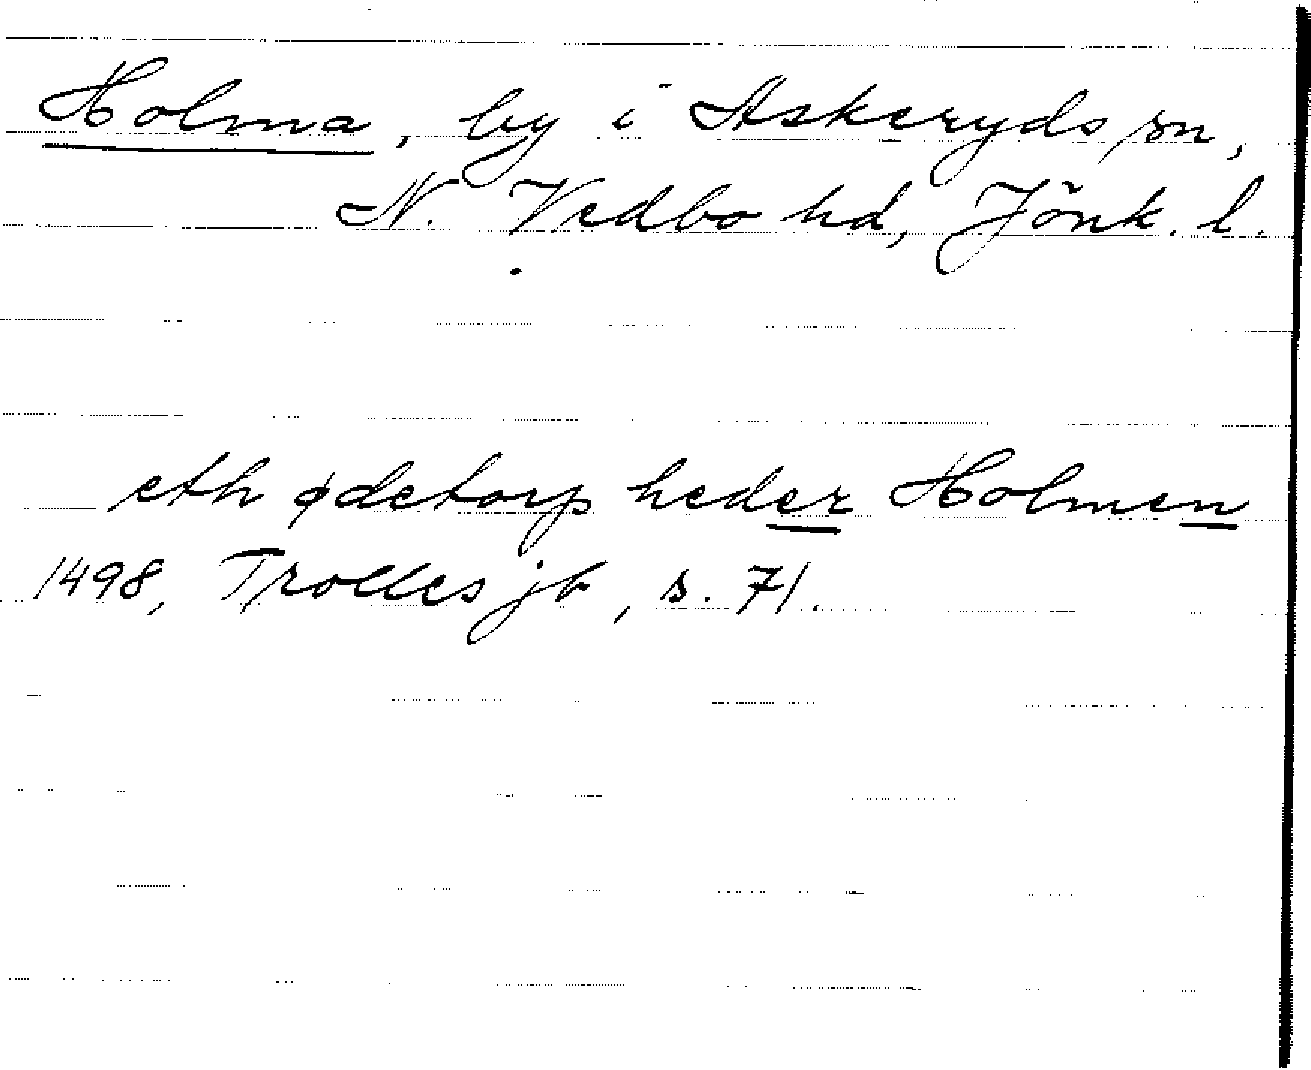 Holma, by i Askeryds sn,
N. Vedbo hd, Jönk. l.
eth ødetorp heder Holmen
1498, Trolles jb, s. 71.